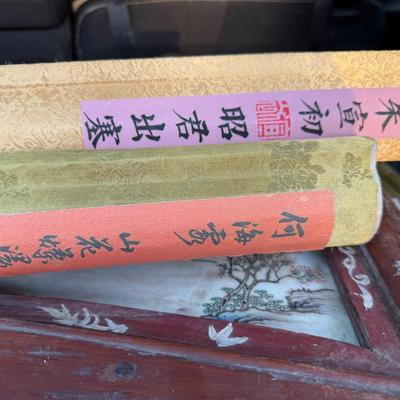 朱宣初 昭君出塞
何海霞 山花爛漫